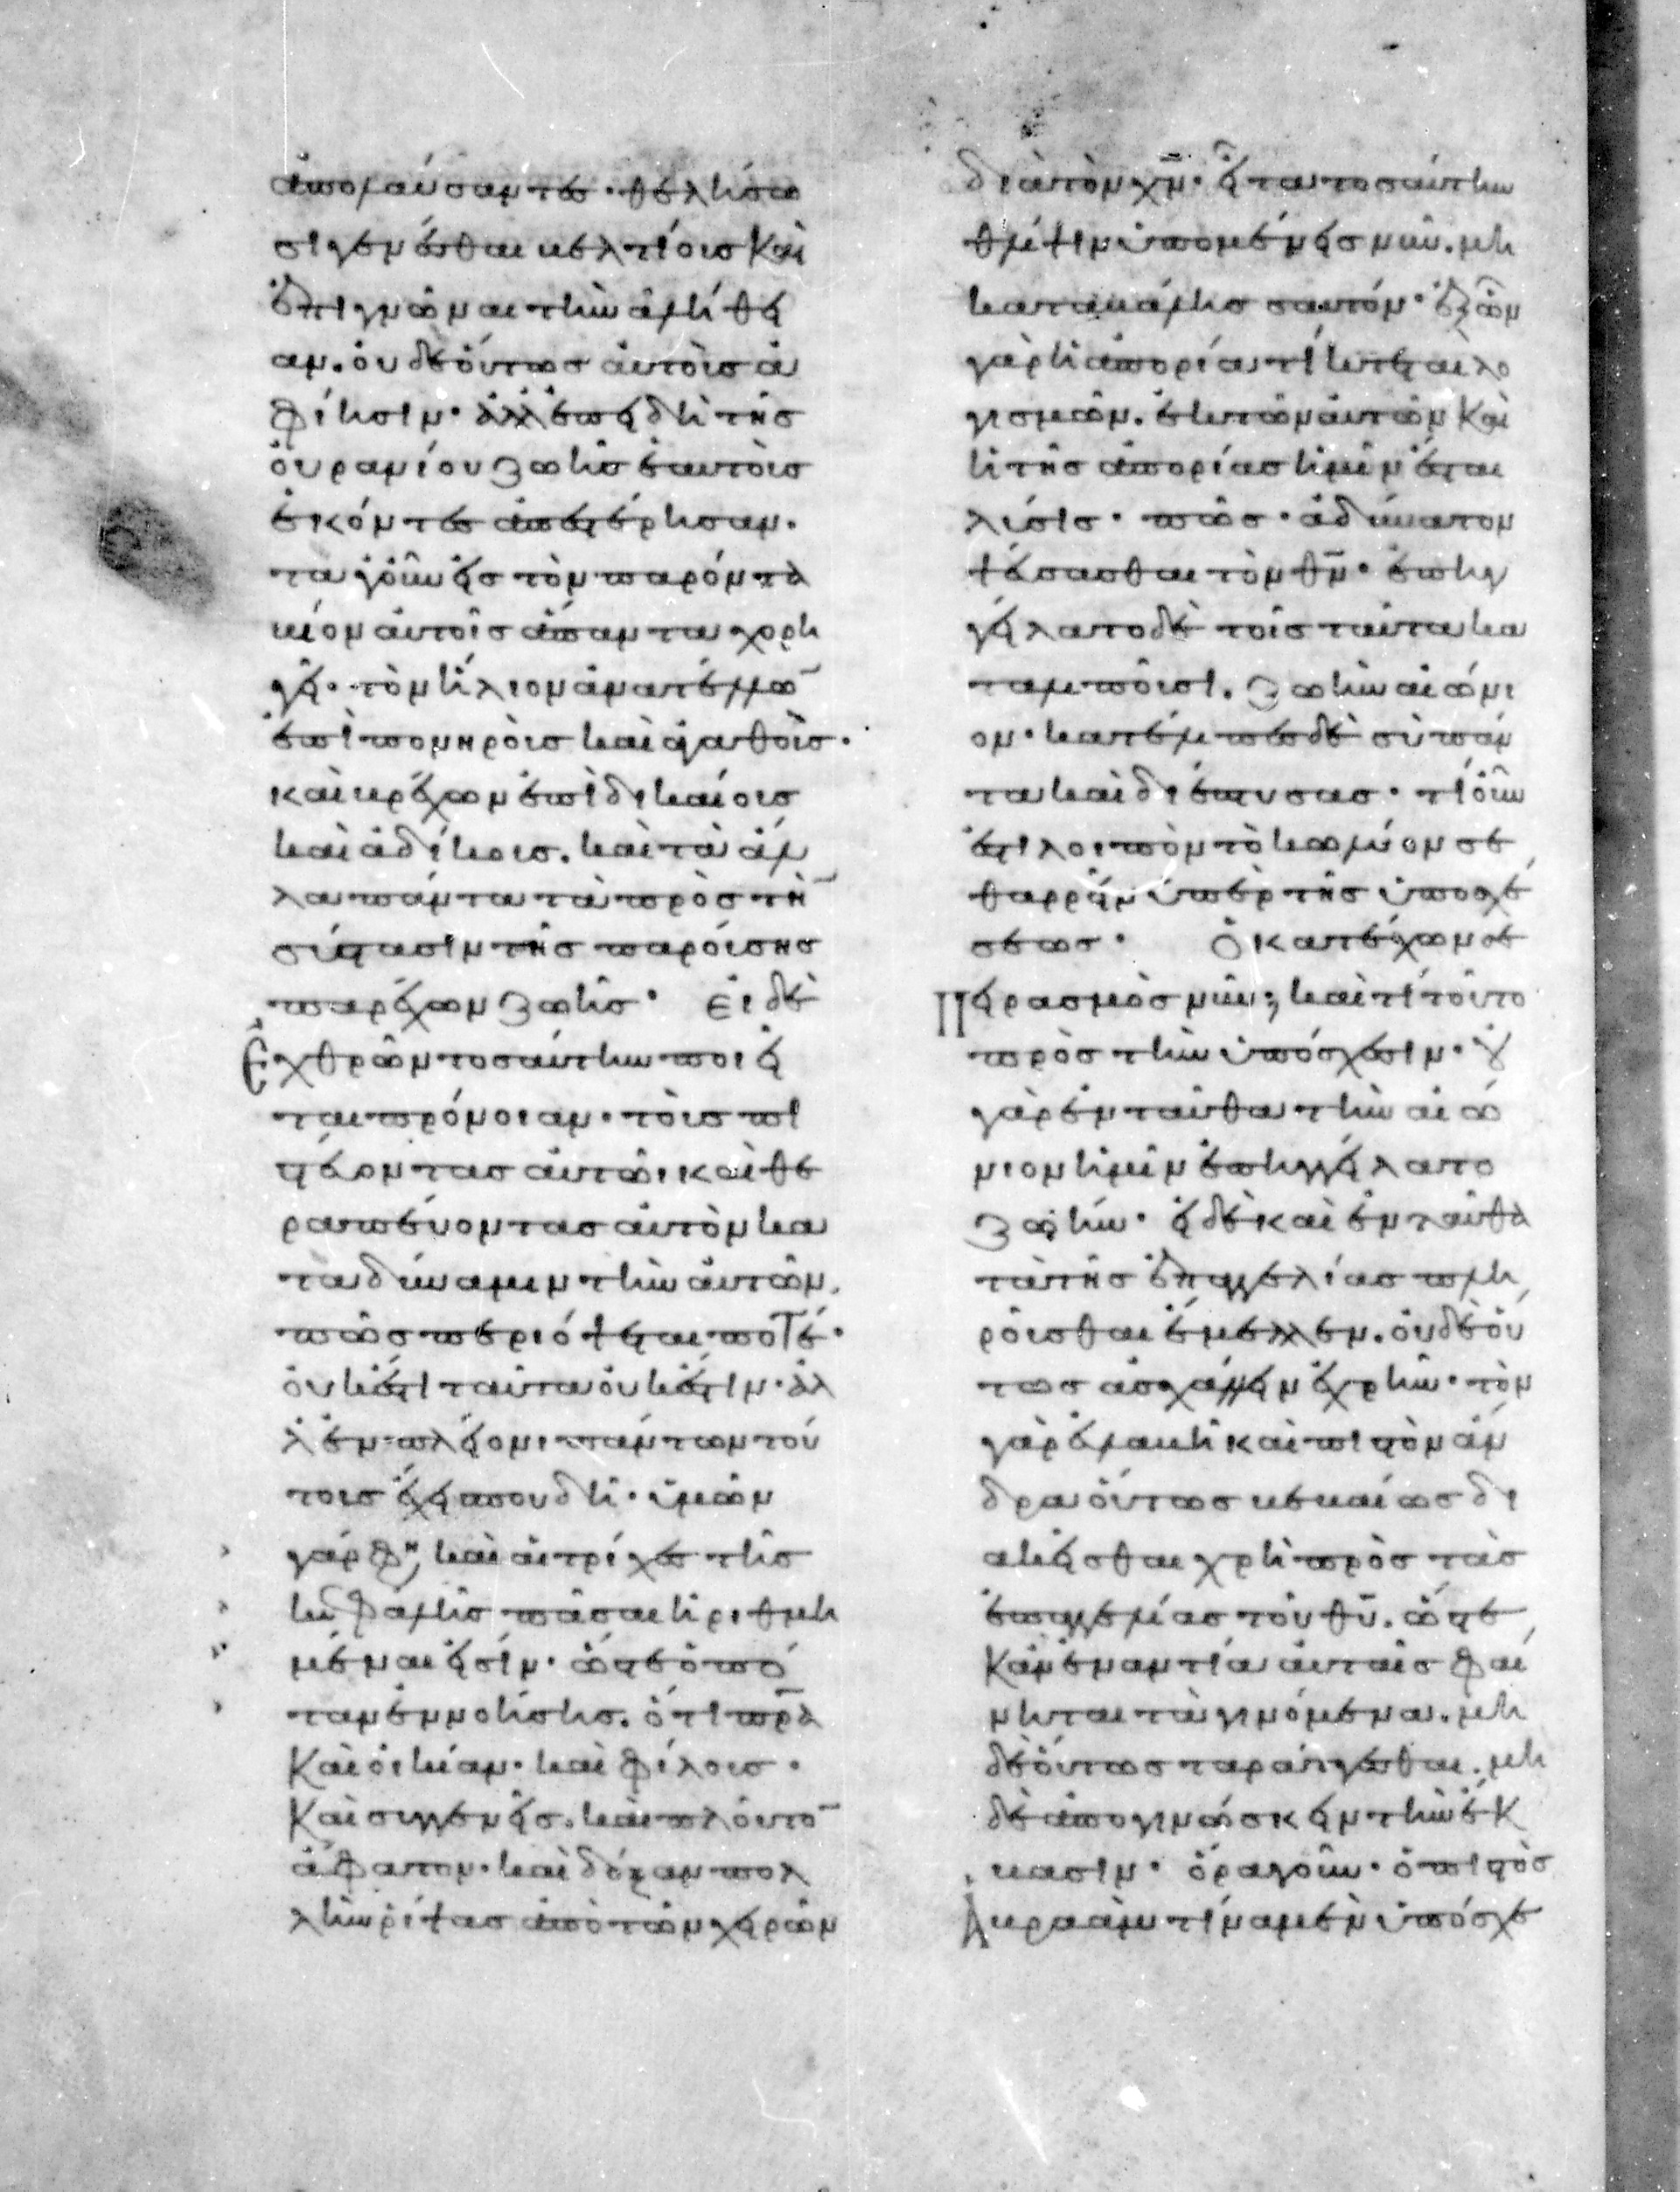 ἀπολαύσαντες· θελήσω
σι γενέσθαι βελτίους καὶ
ἐπιγνῶναι τὴν ἀλήθει
αν. οὐδε οὕτως αὐτοὺς ἀ
φίησιν· ἀλλ' ἐπειδὴ τῆς
οὐρανίου ζωῆς ἑαυτοὺς
ἑκόντες ἀπεστέρησαν.
τα γοῦν εἰς τὸν παρόντα
βίον αὐτοῖς ἅπαντα χορη
γεῖ· τὸν ἥλιον ἀνατέλλω
ἐπὶ πονηροὺς καὶ ἀγαθούς·
καὶ βρέχων ἐπὶ δικαίους
καὶ ἀδίκους. καὶ τὰ ἄλ
λα πάντα τὰ πρὸς τὴ
σύστασιν τῆς παρούσης
παρέχων ζωῆς· εἰ δὲ
Ἐχθρῶν τοσαύτην ποιεῖ
ται πρόνοιαν· τοὺς πι
στεύοντας αὐτῶι καὶ θε
ραπεύοντας αὐτὸν κα
τα δύναμιν τὴν αὐτῶν.
πῶς περιόψεται ποτέ·
οὐκ ἔστι ταῦτα οὐκ ἔστιν· ἀλ
λ' ἐν πλείονι πάντων τού
τους ἔχει σπουδῆ· ὑμῶν
γάρ φη, καὶ αἱ τρίχες τῆς
κεφαλῆς πᾶσαι ἠριθμη
μέναι εἰσίν· ὥστε ὁπό
ταν ἐννοήσης. ὅτι πρα
Καὶ οἰκίαν· καὶ φίλους·
Καὶ συγγενεῖς. καὶ πλοῦτο
ἄφατον· καὶ δόξαν πολ
λὴν ῥίψας ἀπὸ τῶν χειρῶν
διὰ τὸν χν· εἶτα τοσαύτην
θλίψιν ὑπομένεις νῦν. μὴ
καταβάλης σαυτόν· ἐξ ὧν
γὰρ ἡ ἀπορία τίκτεται λο
γισμῶν. ἐκ τῶν αὐτῶν καὶ
ἡ τῆς ἀπορίας ἡμῖν ἔσται
λύσις· πῶς· ἀδύνατον
ψεύσασθαι τὸν θν· ἐπηγ
γείλατο δὲ τοῖς ταῦτα κα
ταλιποῦσι. ζωὴν αἰώνι
ον· κατέλιπες δὲ σὺ πάν
τα καὶ διέπτυσας· τί οὖν
ἐστι λοιπὸν τὸ κωλύον σε
θαρρεῖν ὑπὲρ τῆς ὑποσχέ
σεως· ὁ κατέχων σε
Πειρασμὸς νῦν; καὶ τί τοῦτο
πρὸς τὴν ὑπόσχεσιν· οὐ
γὰρ ἐνταῦθα τὴν αἰώ
νιον ἡμῖν ἐπηγγείλατο
ζωήν· εἰ δὲ καὶ ἐνταῦθα
τὰ τῆς ἐπαγγελίας πλη
ροῦσθαι ἔμελλεν. οὐδὲ οὕ
τως ἀσχάλλειν ἐχρῆν· τὸν
γὰρ εὐλαβῆ καὶ πιστὸν ἄν
δρα οὕτως βεβαίως δι
ακεῖσθαι χρὴ πρὸς τὰς
ἐπαγγελίας τοῦ θυ. ὥστε
Κἂν ἐναντία αὐταῖς φαί
νηται τὰ γινόμενα. μη
δὲ οὕτως ταράττεσθαι. μη
δὲ ἀπογινώσκειν τὴν ἔκ
βασιν· ὅρα γοῦν· ὁ πιστὸς
Ἀβραὰμ τίνα μὲν ὑπόσχε